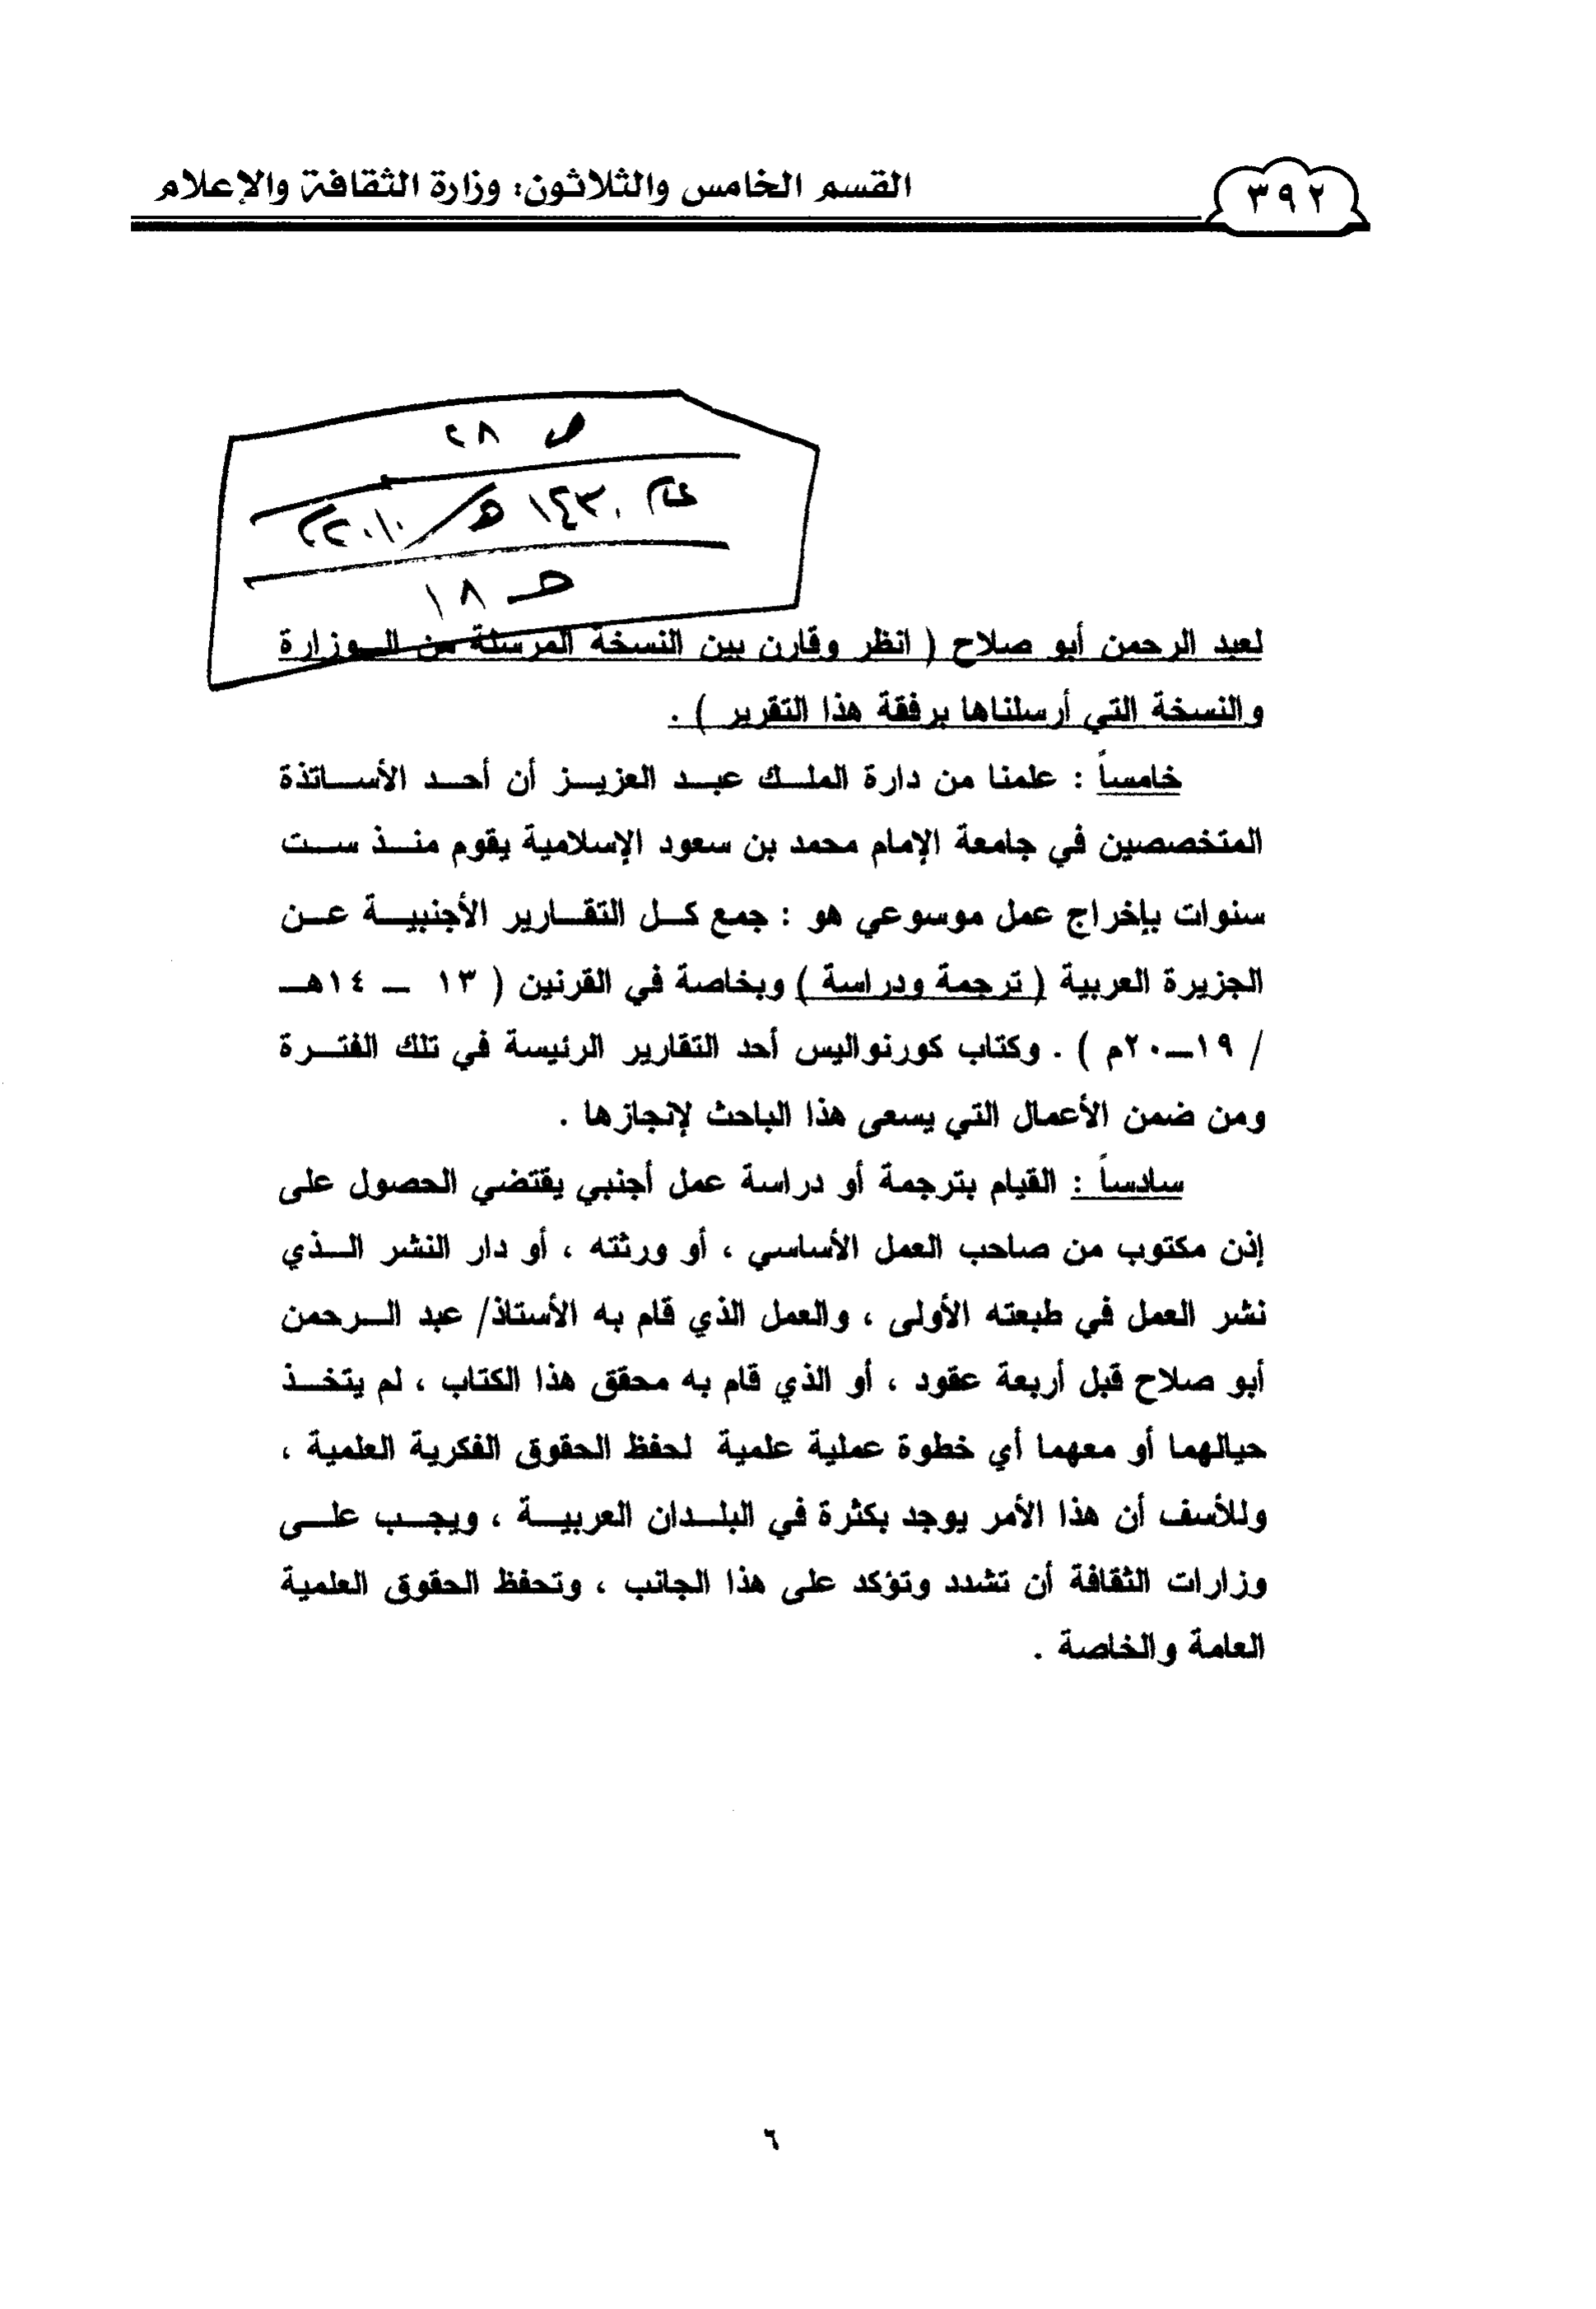 ٣٩٢
القسم الخامس والثلاثون: وزارة الثقافة والإعلام
ص ٢٨
عام ١٤٣٠هـ/٢٠١٠م
حـ ١٨
لعبد الرحمن أبو صلاح ( انظر وقارن بين النسخة المرسلة من الـوزارة
والنسخة التي أرسلناها برفقة هذا التقرير ) .
خامساً : علمنا من دارة الملك عبد العزيز أن أحد الأساتذة
المتخصصين في جامعة الإمام محمد بن سعود الإسلامية يقوم منذ ست
سنوات بإخراج عمل موسوعي هو : جمع كل التقارير الأجنبية عن
الجزيرة العربية ( ترجمة ودراسة ) وبخاصة في القرنين ( ١٣ ـ ١٤هـ
/ ١٩ـ٢٠م ) . وكتاب كورنواليس أحد التقارير الرئيسة في تلك الفترة
ومن ضمن الأعمال التي يسعى هذا الباحث لإنجازها .
سادساً : القيام بترجمة أو دراسة عمل أجنبي يقتضي الحصول على
إذن مكتوب من صاحب العمل الأساسي ، أو ورثته ، أو دار النشر الذي
نشر العمل في طبعته الأولى ، والعمل الذي قام به الأستاذ/ عبد الرحمن
أبو صلاح قبل أربعة عقود ، أو الذي قام به محقق هذا الكتاب ، لم يتخذ
حيالهما أو معهما أي خطوة عملية علمية لحفظ الحقوق الفكرية العلمية ،
وللأسف أن هذا الأمر يوجد بكثرة في البلدان العربية ، ويجب على
وزارات الثقافة أن تشدد وتؤكد على هذا الجانب ، وتحفظ الحقوق العلمية
العامة والخاصة .
٦